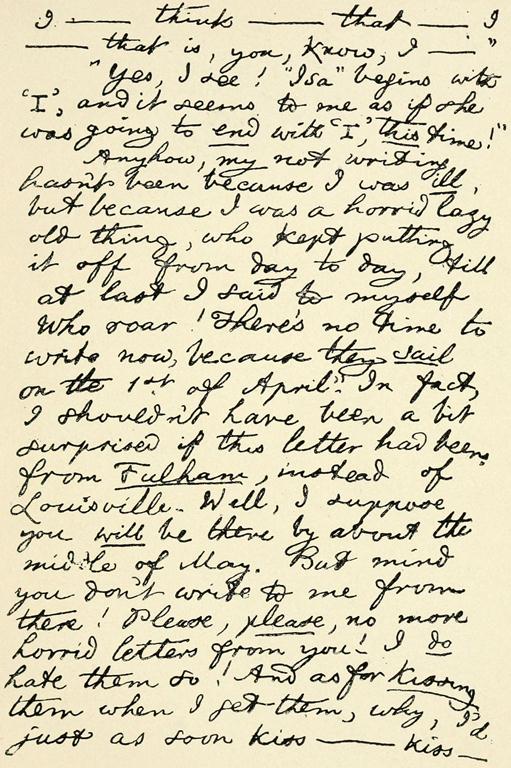 I —— think —— that —— I
—— that is, you, know, I ——"
"Yes, I see! "Isa" begins with
'I', and it seems to me as if she
was going to end with 'I', this time!"
Anyhow, my not writing
hasn't been because I was ill,
but because I was a horrid lazy
old thing, who kept putting
it off from day to day, till
at last I said to myself
Who roar! There's no time to
write now, because they sail
on the 1st of April." In fact,
I shouldn't have been a bit
surprised if this letter had been
from Fulham, instead of
Louisville. Well, I suppose
you will be there by about the
middle of May. But mind
you don't write to me from
there! Please, please, no more
horrid letters from you! I do
hate them so! And as for kissing
them when I get them, why, I'd
just as soon kiss —— kiss —